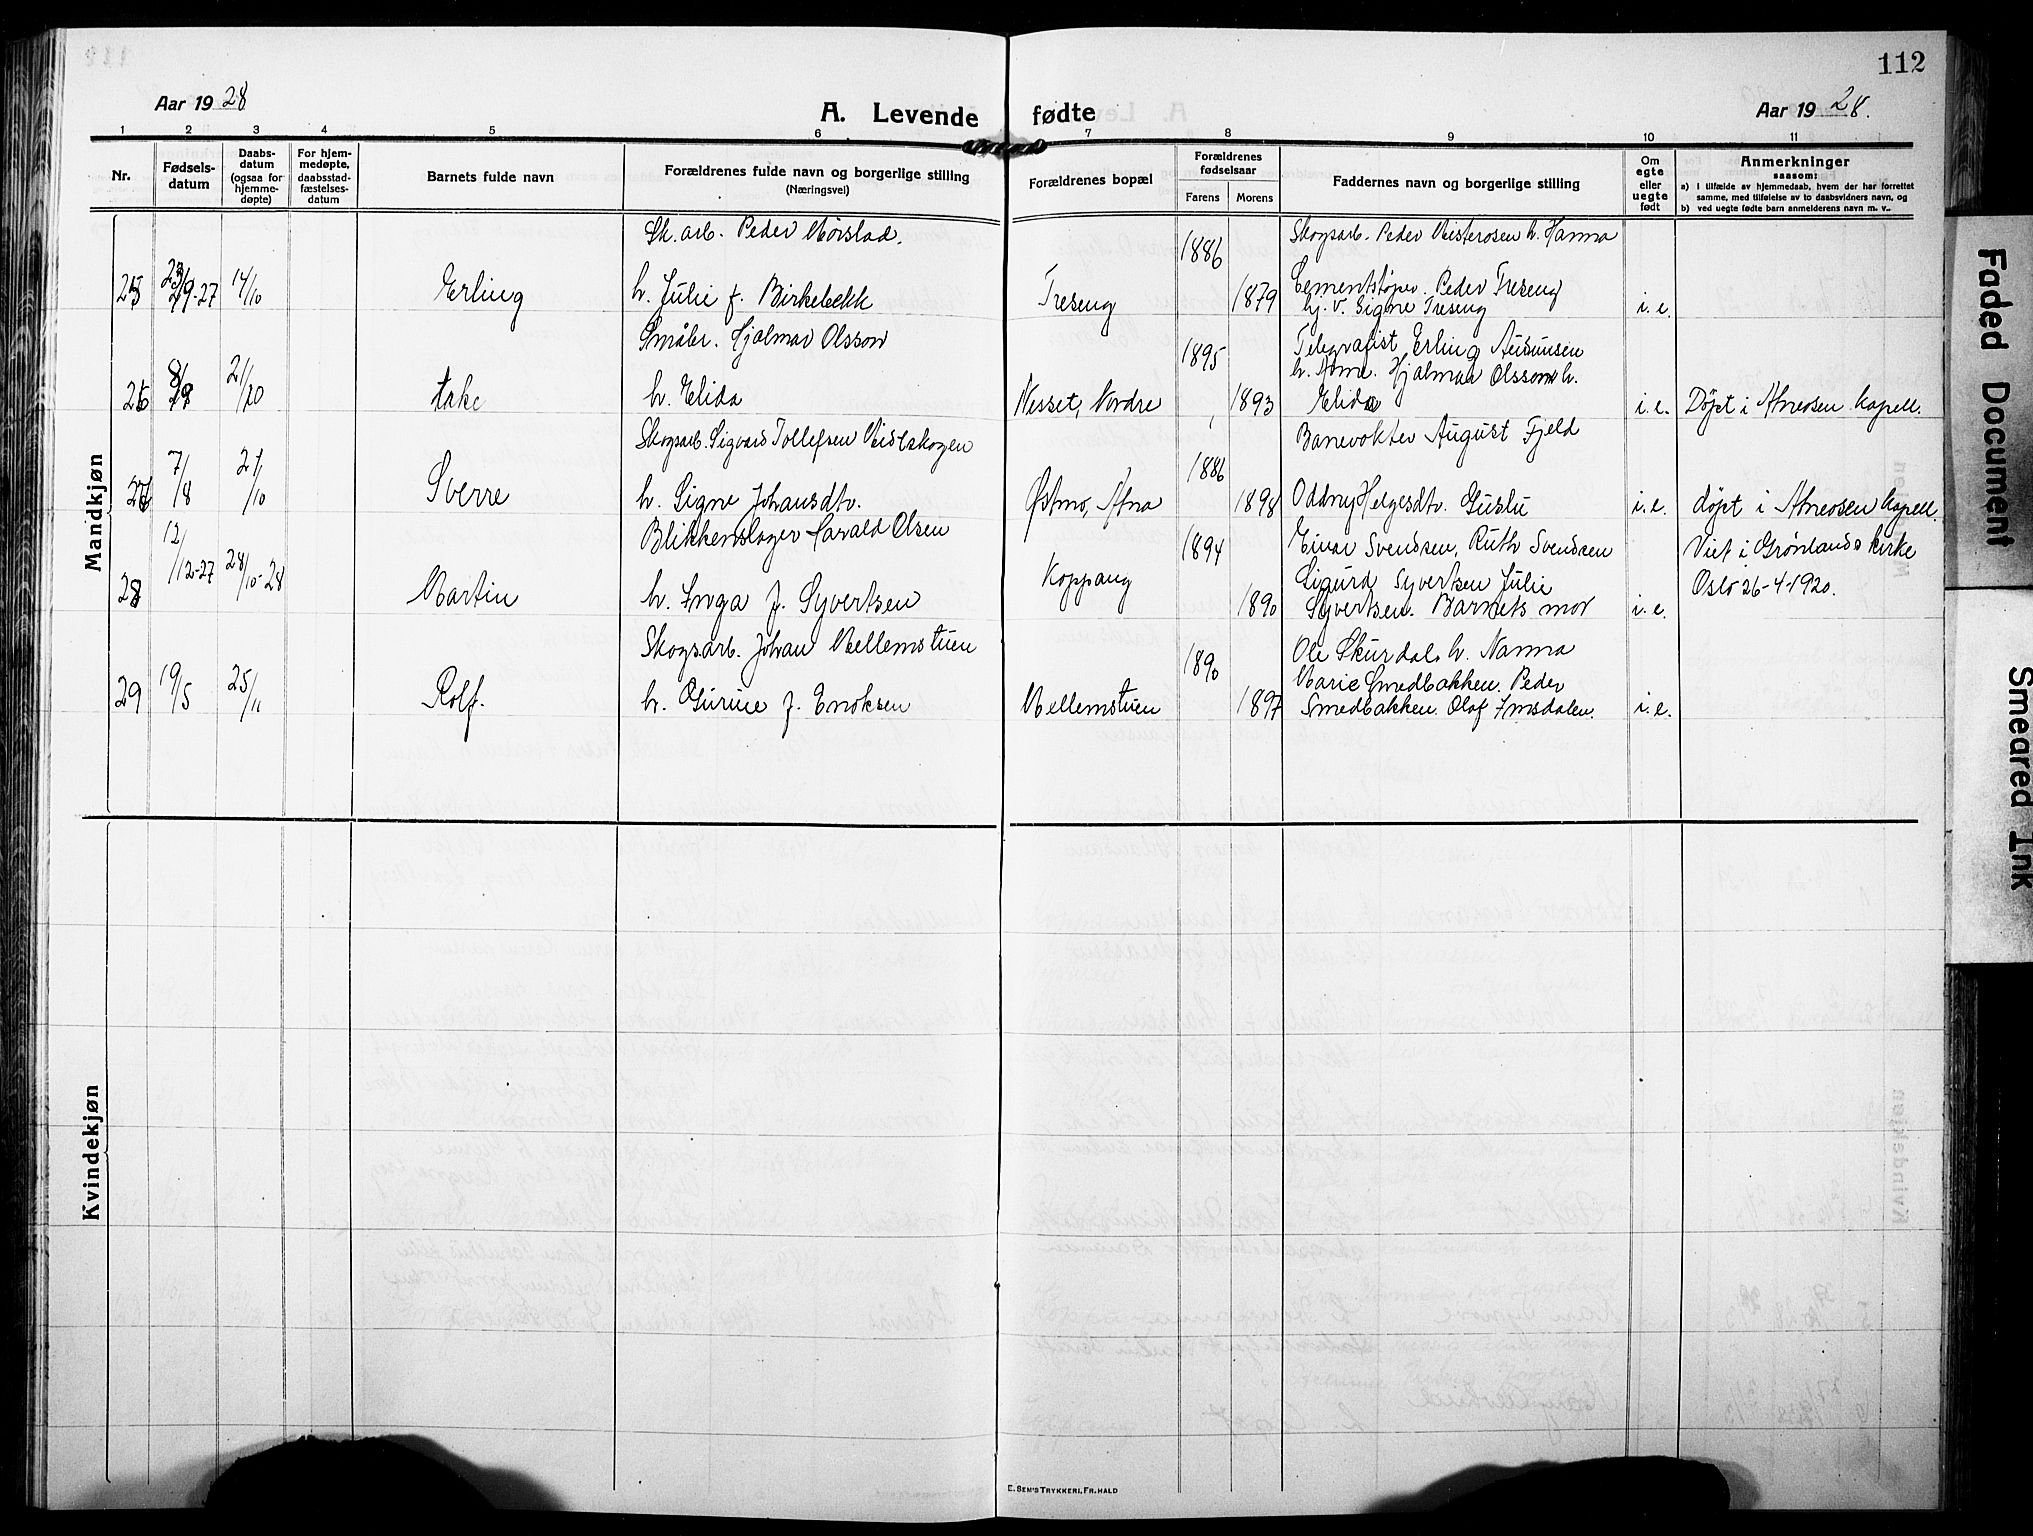 112
Aar 1928
A. Levende
fødte
Aar 1928.
1 2 3 4 5 6 7 8 9 10 11
Nr.
Fødsels-
datum
Daabs-
datum
(ogsaa for
hjemme-
døpte)
For hjem-
medøpte,
daabsstad-
fæstelses-
datum
Barnets fulde navn
Forældrenes fulde navn og borgerlige stilling
(Næringsvei)
Forældrenes bopæl
Forældrenes
fødselsaar
Farens
Morens
Faddernes navn og borgerlige stilling
Om
egte
eller
uegte
født
Anmerkninger
saasom:
a) I tilfælde av hjemmedaab, hvem der har forrettet
samme, med tilføielse av to daabsvidners navn, og
b) ved uegte fødte barn anmelderens navn m. v..
Mandkjøn
Sk. arb. Peder Mørstad.
1886
Skogsarb. Peder Westerosen h. Hanna
25 -27 14/10 Erling h. Julie f. Birkebekk Treseng 1879 Cementstøper Peder Treseng
hj. v. Signe Treseng i.e.
Småbr. Hjalmar Olsson
1895
Telegrafist Erling
h. Anne. Hjalmar Olsson h.
26 21/10 Åke h. Elida Nesset, Nordre 1893 Elida i.e. Døpt i Atneosen kapell.
Skogsarb. Sigvard Tollefsen Vestskogen
1886
Banevokter August Fjeld
27 7/8 21/10 Sverre h. Signe Johansdtr. Østmo, Atna 1898 Oddny Helgesdtr. i.e. døpt i Atneosen kapell.
Blikkenslager Harald Olsen
1894
Einar Svendsen, Ruth Svendsen
Viet i Grønlands kirke
28 12/12-27 28/10-28 Martin h. Inga f. Syvertsen Koppang 1890 Sigurd Syvertsen Julie
Syvertsen. Barnets mor i.e.
Oslo 26-4-1920.
Skogsarb. Johan Mellemstuen
1890
Ole Skurdal h. Nanna
29 19/5 25/11 Rolf. h. Gurine f. Enoksen Mellemstuen 1897 Marie Smedbakken. Peder
Smedbakken. Olaf Imsdalen. i.e.
Kvindekjøn
E. SEM'S TRYKKERI, FR.HALD
Faded Document
Smeared Ink